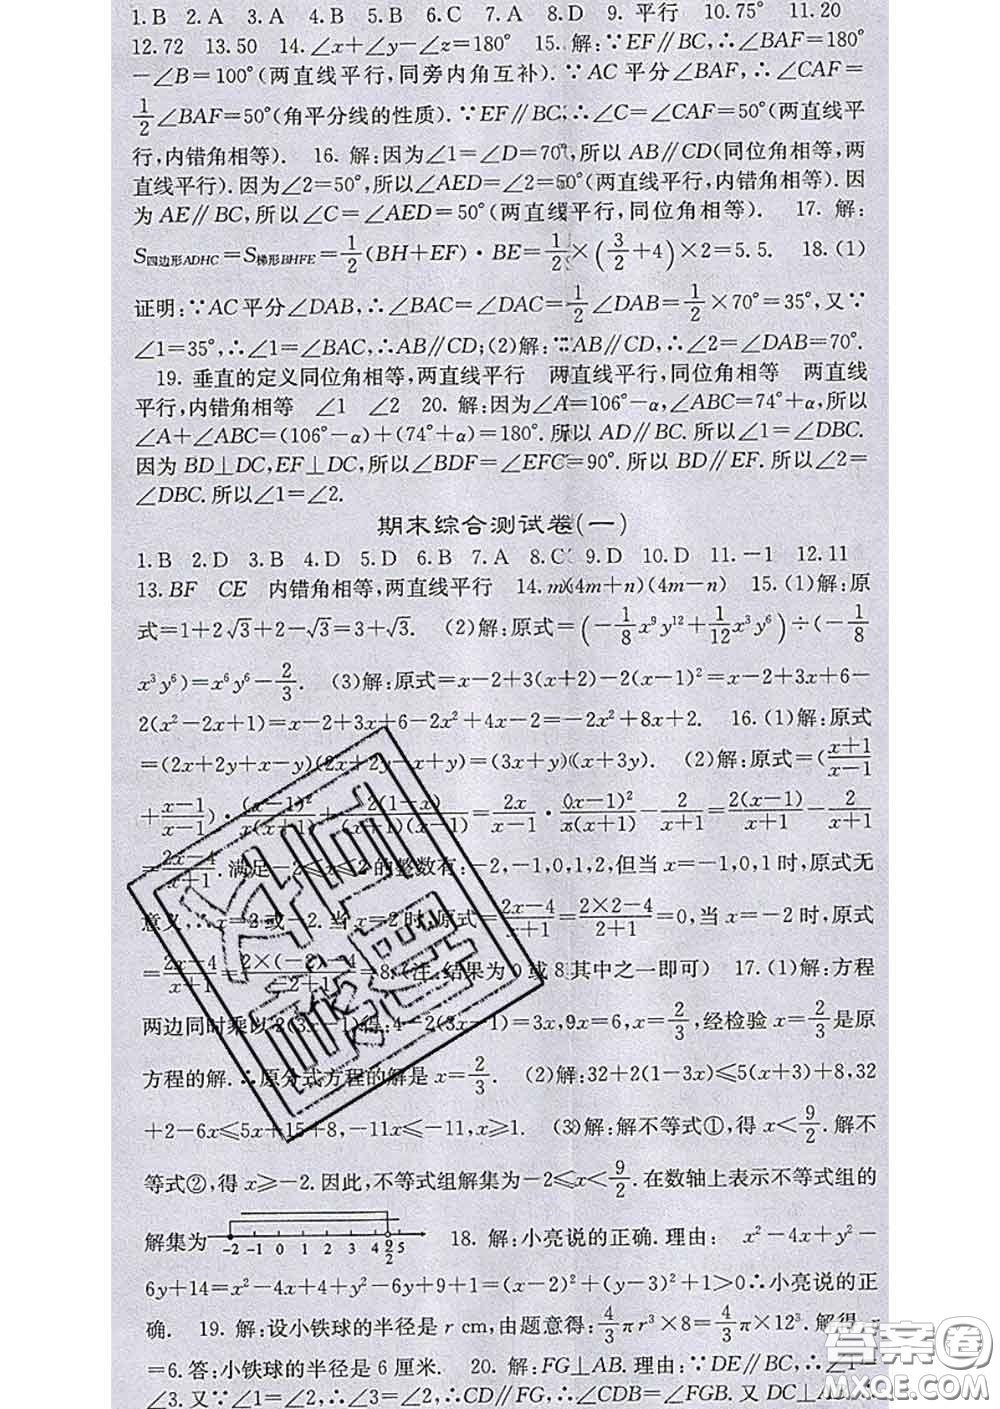 1.B 2.A 3.A 4.B 5.B 6.C 7.A 8.D 9.平行 10.75° 11.20
12.72 13.50 14.∠x+∠y-∠z=180° 15.解:∵EF∥BC,∴∠BAF=180°
-∠B=100°(两直线平行,同旁内角互补).∵AC平分∠BAF,∴∠CAF=
1/2∠BAF=50°(角平分线的性质).∵EF∥BC,∴∠C=∠CAF=50°(两直线平
行,内错角相等). 16.解:因为∠1=∠D=70°,所以AB∥CD(同位角相等,两
直线平行).因为∠2=50°,所以∠AED=∠2=50°(两直线平行,内错角相等).因
为AE∥BC,所以∠C=∠AED=50°(两直线平行,同位角相等). 17.解:
S四边形ADHC=S梯形BHFE=1/2(BH+EF)·BE=1/2×(3/2+4)×2=5.5. 18.(1)
证明:∵AC平分∠DAB,∴∠BAC=∠DAC=1/2∠DAB=1/2×70°=35°,又∵
∠1=35°,∴∠1=∠BAC,∴AB∥CD;(2)解:∵AB∥CD,∴∠2=∠DAB=70°.
19.垂直的定义同位角相等,两直线平行 两直线平行,同位角相等 两直线
平行,内错角相等 ∠1 ∠2 20.解:因为∠A=106°-α,∠ABC=74°+α,所以
∠A+∠ABC=(106°-α)+(74°+α)=180°.所以AD∥BC.所以∠1=∠DBC.
因为BD⊥DC,EF⊥DC,所以∠BDF=∠EFC=90°.所以BD∥EF.所以∠2=
∠DBC.所以∠1=∠2.
期末综合测试卷(一)
1.B 2.D 3.B 4.D 5.D 6.B 7.A 8.C 9.D 10.D 11.-1 12.11
13.BF CE 内错角相等,两直线平行 14.m(4m+n)(4m-n) 15.(1)解:原
式=1+2√3+2-√3=3+√3. (2)解:原式=(-1/8x⁹y¹²+1/12x³y⁶)÷(-1/8
x³y⁶)=x⁶y⁶-2/3. (3)解:原式=x-2+3(x+2)-2(x-1)²=x-2+3x+6-
2(x²-2x+1)=x-2+3x+6-2x²+4x-2=-2x²+8x+2. 16.(1)解:原式
=(2x+2y+x-y)(2x+2y-x+y)=(3x+y)(x+3y). (2)解:原式=(x+1/x-1
+x-1/x-1)·(x-1)²/x(x+1)+2(1-x)/(x+1)(x-1)=2x/x-1·(x-1)²/x(x+1)-2/x+1=2(x-1)/x+1-2/x+1
=2x-4/x+1.满足-2≤x≤2的整数有:-2,-1,0,1,2,但当x=-1,0,1时,原式无
意义,∴x=2或-2.当x=2时,原式=2x-4/x+1=2×2-4/2+1=0,当x=-2时,原式
=2x-4/x+1=2×(-2)-4/-2+1=8.(注:结果为0或8其中之一即可) 17.(1)解:方程
两边同时乘以2(3x-1)得:4-2(3x-1)=3x,9x=6,x=2/3,经检验x=2/3是原
方程的解.∴原分式方程的解是x=2/3. (2)解:32+2(1-3x)≤5(x+3)+8,32
+2-6x≤5x+15+8,-11x≤-11,x≥1. (3)解:解不等式①,得x<9/2.解不
等式②,得x≥-2.因此,不等式组解集为-2≤x<9/2.在数轴上表示不等式组的
解集为 -2 -1 0 1 2 3 4 9/2 5 18.解:小亮说的正确.理由: x²-4x+y²-
6y+14=x²-4x+4+y²-6y+9+1=(x-2)²+(y-3)²+1>0∴小亮说的正
确. 19.解:设小铁球的半径是r cm,由题意得:4/3πr³×8=4/3π×12³.解得r
=6.答:小铁球的半径是6厘米. 20.解:FG⊥AB.理由:∵DE∥BC,∴∠1=
∠3.又∵∠1=∠2,∴∠3=∠2,∴CD∥FG,∴∠CDB=∠FGB.又DC⊥AB
答案圈
MXQE.COM